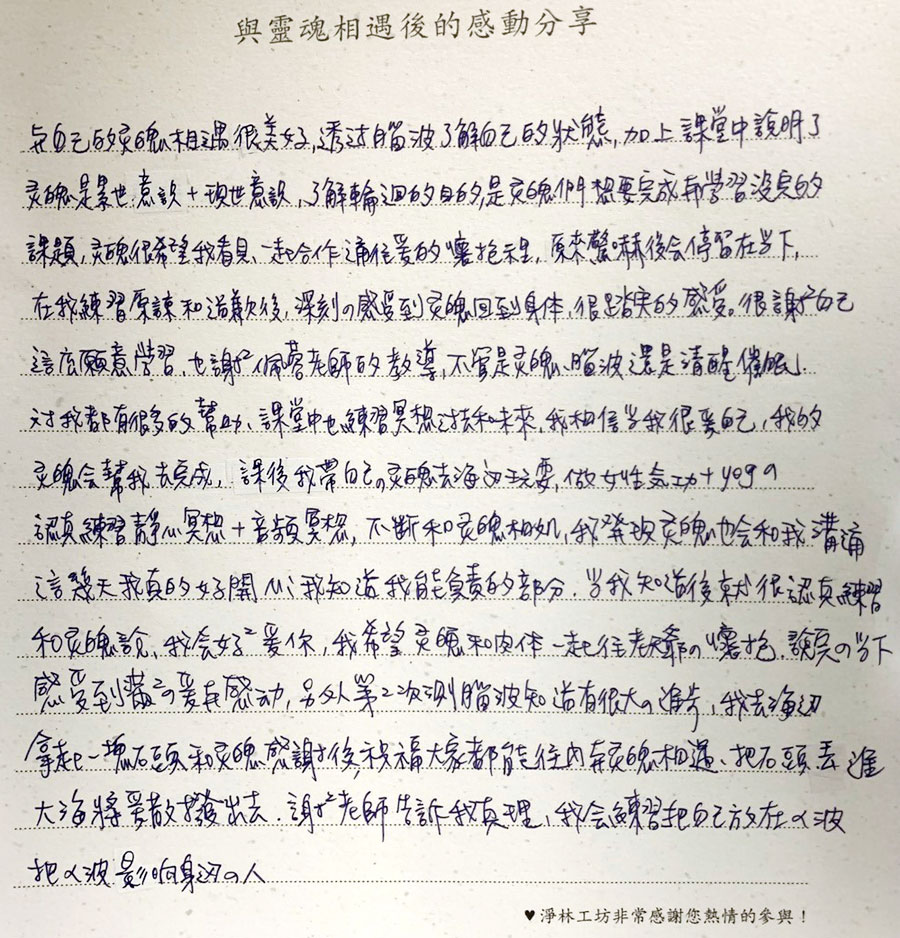 與靈魂相遇後的感動分享
与自己的灵魂相遇很美好,透过腦波了解自己的狀態,加上課堂中說明了
灵魂是累世意識+現世意識,了解輪迴的目的,是灵魂們想要完成和學習沒完的
課題,灵魂很希望我看見、一起合作通往爱的懷抱裡,原來驚嚇後会停留在当下,
在我練習原諒和道歉後,深刻の感受到灵魂回到身体,很踏实的感受。很謝²自己
這広願意學習,也謝²佩蓉老師的教導,不管是灵魂、腦波還是清醒催眠,
对我都有很多的幫助、課堂中也練習冥想过去和未來,我相信当我很爱自己,我的
灵魂会幫我去完成,課後我帶自己の灵魂去海边玩耍,做女性気功+yoga
認真練習靜心冥想+音頻冥想,不斷和灵魂相処,我發現灵魂也会和我溝通
這幾天我真的好開心,我知道我能負責的部分,当我知道後就很認真練習
和灵魂說,我会好²爱你,我希望灵魂和肉体一起往老天爺の懷抱,說完の当下
感受到滿²の爱與感动,另外第二次測腦波知道有很大の進步,我去海边
拿起一塊石頭和灵魂感謝後,祝福大家都能往內與灵魂相遇、把石頭丟進
大海將爱散撥出去,謝²老師告訴我真理,我会練習把自己放在α波
把α波影响身边の人
♥淨林工坊非常感謝您熱情的參與!